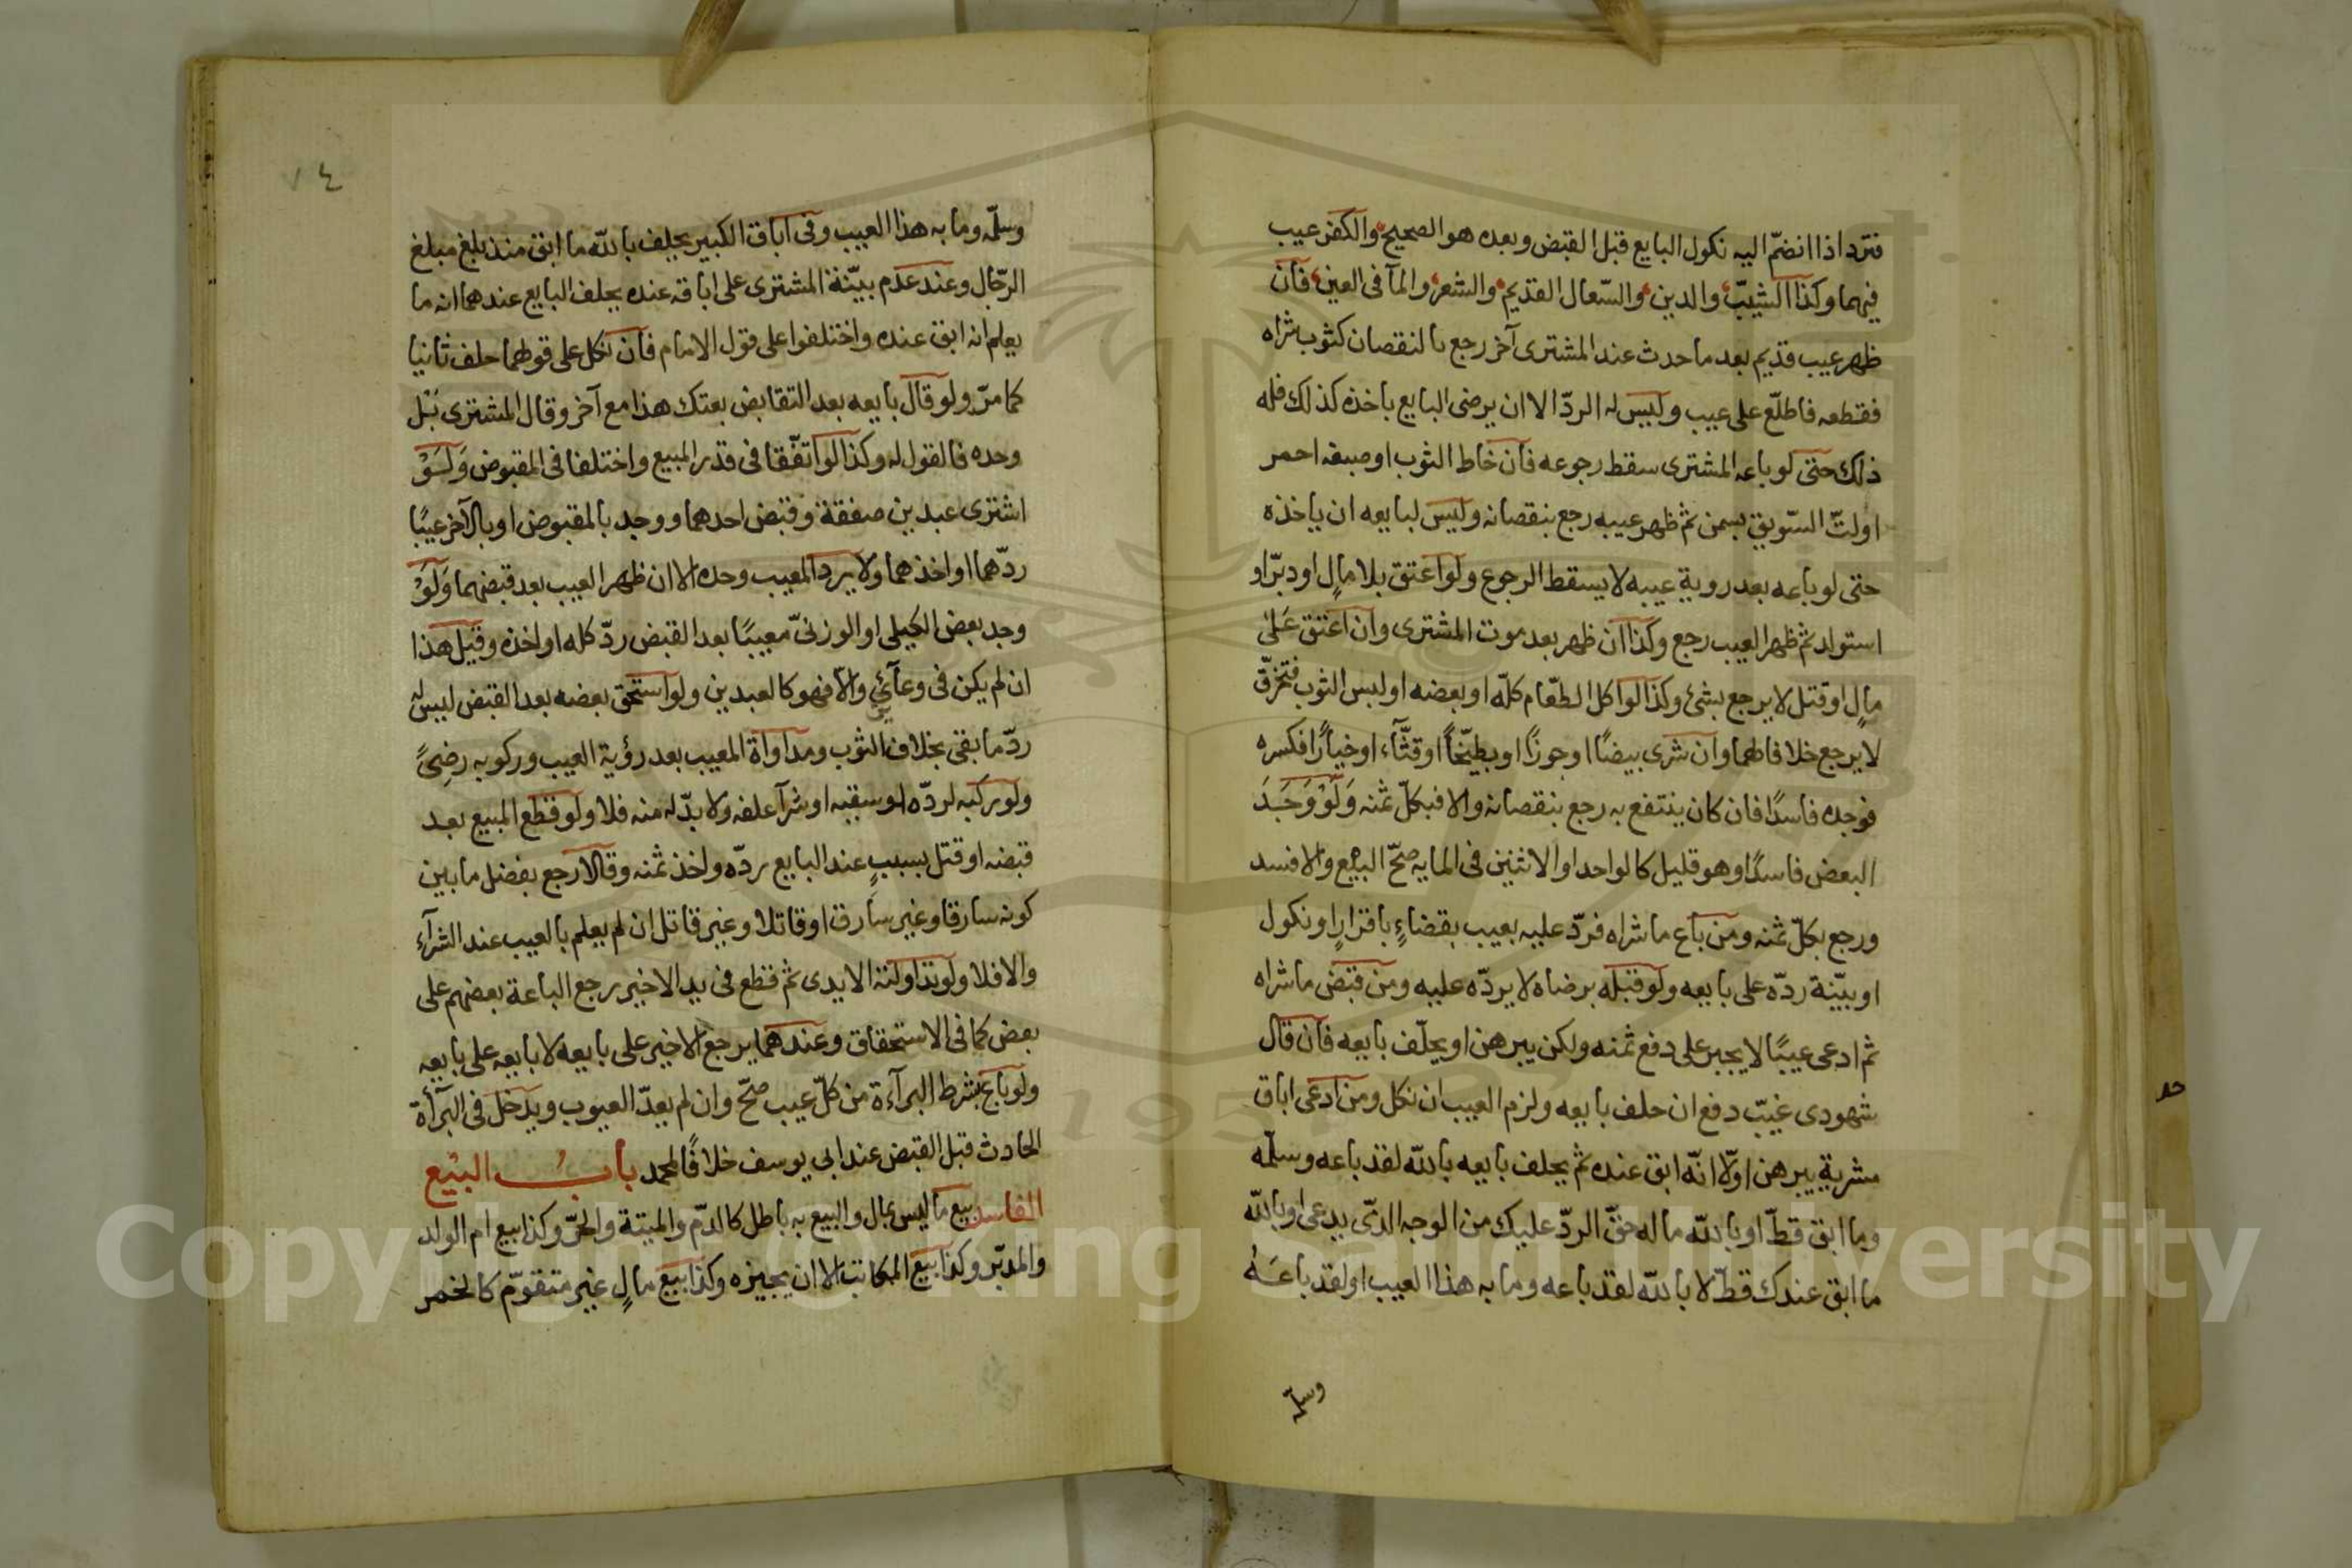 فترد اذا انضمّ اليه نكول البايع قبل القبض وبعده هو الصحيح والكفر عيب
فيهما وكذا الشيب والدين والسّعال القديم والشعر والمآ فى العين فان
ظهر عيب قديم بعد ما حدث عند المشترى آخر رجع بالنقصان كثوب شراه
فقطعه فاطلّع على عيب وليس له الردّ الا ان يرضى البايع باخذه كذلك فله
ذلك حتى لو باعه المشترى سقط رجوعه فان خاط الثوب او صبغه احمر
او لتّ السّويق بسمن ثم ظهر عيبه رجع بنقصانه وليس لبايعه ان ياخذه
حتى لو باعه بعد روية عيبه لا يسقط الرجوع ولو اعتق بلا مالٍ او دبّر او
استولد ثم ظهر العيب رجع وكذا ان ظهر بعد موت المشترى وان اعتق على
مالٍ او قتل لا يرجع بشئ وكذا لو اكل الطّعام كلّه او بعضه او لبس الثوب فتخرّق
لا يرجع خلافا لهما وان شرى بيضًا او جوزًا او بطيّخاً او قثّآء او خيارًا فكسره
فوجده فاسدًا فان كان ينتفع به رجع بنقصانه والا فبكلّ ثمنه وَلَوْ وَجَدَ
البعض فاسدًا وهو قليل كالواحد او الاثنين فى المايه صحّ البيع والا فسد
ورجع بكلّ ثمنه ومن باع ما شراه فردّ عليه بعيب بقضاءٍ باقرارٍ او نكول
او بيّنة ردّه على بايعه ولو قبله برضاه لا يردّه عليه ومن قبض ما شراه
ثم ادعى عيبًا لا يجبر على دفع ثمنه ولكن يبرهن او يحلّف بايعه فان قال
شهودى غيّب دفع ان حلف بايعه ولزم العيب ان نكل ومن ادعى اباق
مشريه يبرهن اوّلا انّه ابق عنده ثم يحلف بايعه بالله لقد باعه وسلّمه
وما ابق قطّ او بالله ما له حقّ الردّ عليك من الوجه الذّى يدعى او بالله
ما ابق عندك قطّ لا بالله لقد باعه وما به هذا العيب او لقد باعَهُ
وسلمه
٧٤
وسلّمه وما به هذا العيب وفى اباق الكبير يحلف بالله ما ابق منذ بلغ مبلغ
الرّجال وعند عدم بيّنة المشترى على اباقه عنده يحلف البايع عندهما انه ما
يعلم انه ابق عنده واختلفوا على قول الامام فان نكل على قولهما حلف ثانيا
كما مرّ ولو قال بايعه بعد التقابض بعتك هذا مع آخر وقال المشترى بَل
وحده فالقول له وكذا لو اتفّقا فى قدر المبيع واختلفا فى المقبوض وَلَوْ
اشترى عبدين صفقة وقبض احدهما ووجد بالمقبوض او بالآخر عيبًا
ردّهما او اخذهما ولا يرد المعيب وحده الا ان ظهر العيب بعد قبضهما وَلَوْ
وجد بعض الكيلى او الوزنىّ معيبًا بعد القبض ردّ كله او اخذه وقيل هذا
ان لم يكن فى وعآئين والّا فهو كالعبدين ولو استحق بعضه بعد القبض ليس له
ردّ ما بقى بخلاف الثوب ومداواة المعيب بعد رؤية العيب وركوبه رضىً
ولو ركبه لردّه او سقيه او شرآ علفه ولا بدّ له منه فلا ولو قطع المبيع بعد
قبضه او قتل بسببٍ عند البايع ردّه واخذ ثمنه وقالا رجع بفضل ما بين
كونه سارقا وغير سارق او قاتلا وغير قاتل ان لم يعلم بالعيب عند الشرآء
والا فلا ولو تداولته الايدى ثم قطع فى يد الاخير رجع الباعة بعضهم على
بعض كما فى الاستحقاق وعندهما يرجع الاخير على بايعه لا بايعه على بايعه
ولو باع بشرط البرآءة من كلّ عيب صحّ وان لم يعدّ العيوب ويدخل فى البرآة
الحادث قبل القبض عند ابى يوسف خلافًا لمحمد بابُ البيْع
الفاسد بيع ما ليس بمال والبيع به باطل كالدّم والميتة والحرّ وكذا بيع ام الولد
والمدبّر وكذا بيع المكاتب الا ان يجيزه وكذا بيع مالٍ غير متقوّم كالخمر
Copyright © King Saud University
1957